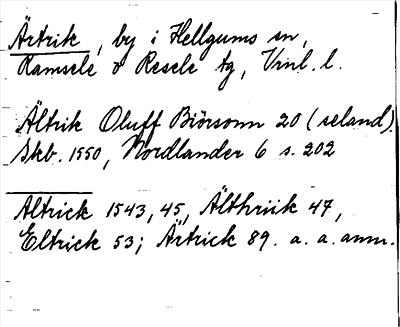 Ärtrik, by i Hellgums sn,
Ramsele o Resele tg, Vnl. l.
Ältrik Oluff Biörsonn 20 (seland).
Skb. 1550, Nordlander 6 s. 202
Altrick 1543, 45, Älthriik 47,
Eltrick 53; Ärtrick 89. a. a. anm.